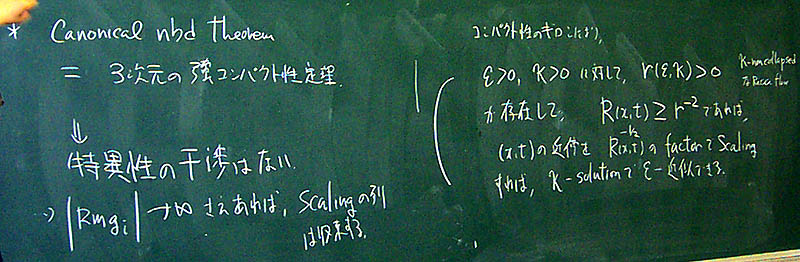 * Canonical nbd theorem
= 3次元の強コンパクト性定理.
⇓
特異性の干渉はない.
→ |Rm g_i| → ∞ さえあれば, Scalingの列
は収束する.
コンパクト性のギロンにより,
ε>0, κ>0 に対して, r(ε,κ)>0
κ-noncollapsed
Ricci flow
が存在して, R(x,t) ≥ r^{-2} であれば,
(x,t) の近傍を R(x,t)^{-1/2} の factor で Scaling
すれば, κ-solution で ε-近似できる.